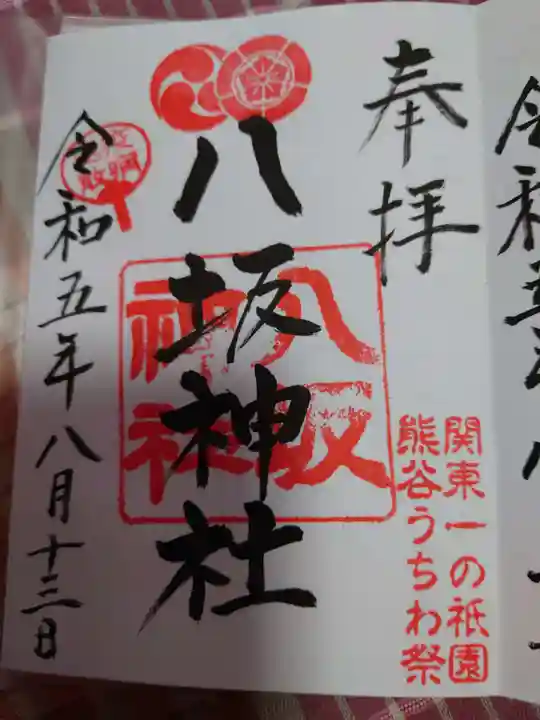 奉拝
関東一の祇園
熊谷うちわ祭
八坂神社
八坂
神社
令和五年八月十三日